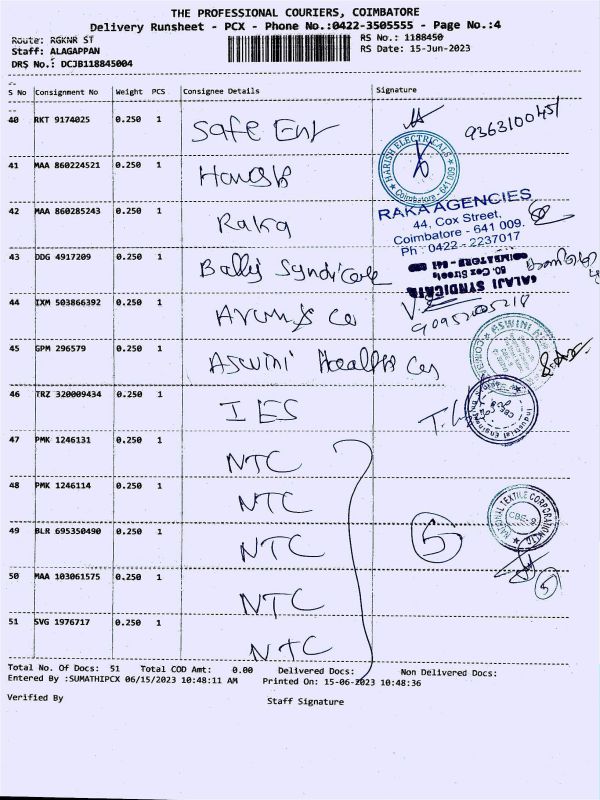 THE PROFESSIONAL COURIERS, COIMBATORE
Delivery Runsheet - PCX - Phone No.:0422-3505555 - Page No.:4
Route: RGKNR ST
RS No.: 1188450
Staff: ALAGAPPAN
RS Date: 15-Jun-2023
DRS No.: DCJB118845004
S No Consignment No Weight PCS Consignee Details Signature
40 RKT 9174025 0.250 1 Safe Ent
9363100451
HARISH ELECTRICALS
Coimbatore - 641 009
41 MAA 860224521 0.250 1
42 MAA 860285243 0.250 1 Raka
RAKA AGENCIES
44, Cox Street,
Coimbatore - 641 009.
Ph : 0422 - 2237017
43 DDG 4917209 0.250 1 Balaji Syndicate
BALAJI SYNDICATE
80, Cox Street
COIMBATORE - 641
44 IXM 503866392 0.250 1
9095205218
45 GPM 296579 0.250 1 Aswini
ASWINI
46 TRZ 320009434 0.250 1 IES
47 PMK 1246131 0.250 1 NTC
48 PMK 1246114 0.250 1 NTC
NATIONAL TEXTILE CORPORATION LTD
CBE-9
49 BLR 695350490 0.250 1 NTC
5
5
50 MAA 103061575 0.250 1 NTC
51 SVG 1976717 0.250 1 NTC
Total No. Of Docs: 51 Total COD Amt: 0.00 Delivered Docs: Non Delivered Docs:
Entered By :SUMATHIPCX 06/15/2023 10:48:11 AM Printed On: 15-06-2023 10:48:36
Verified By
Staff Signature